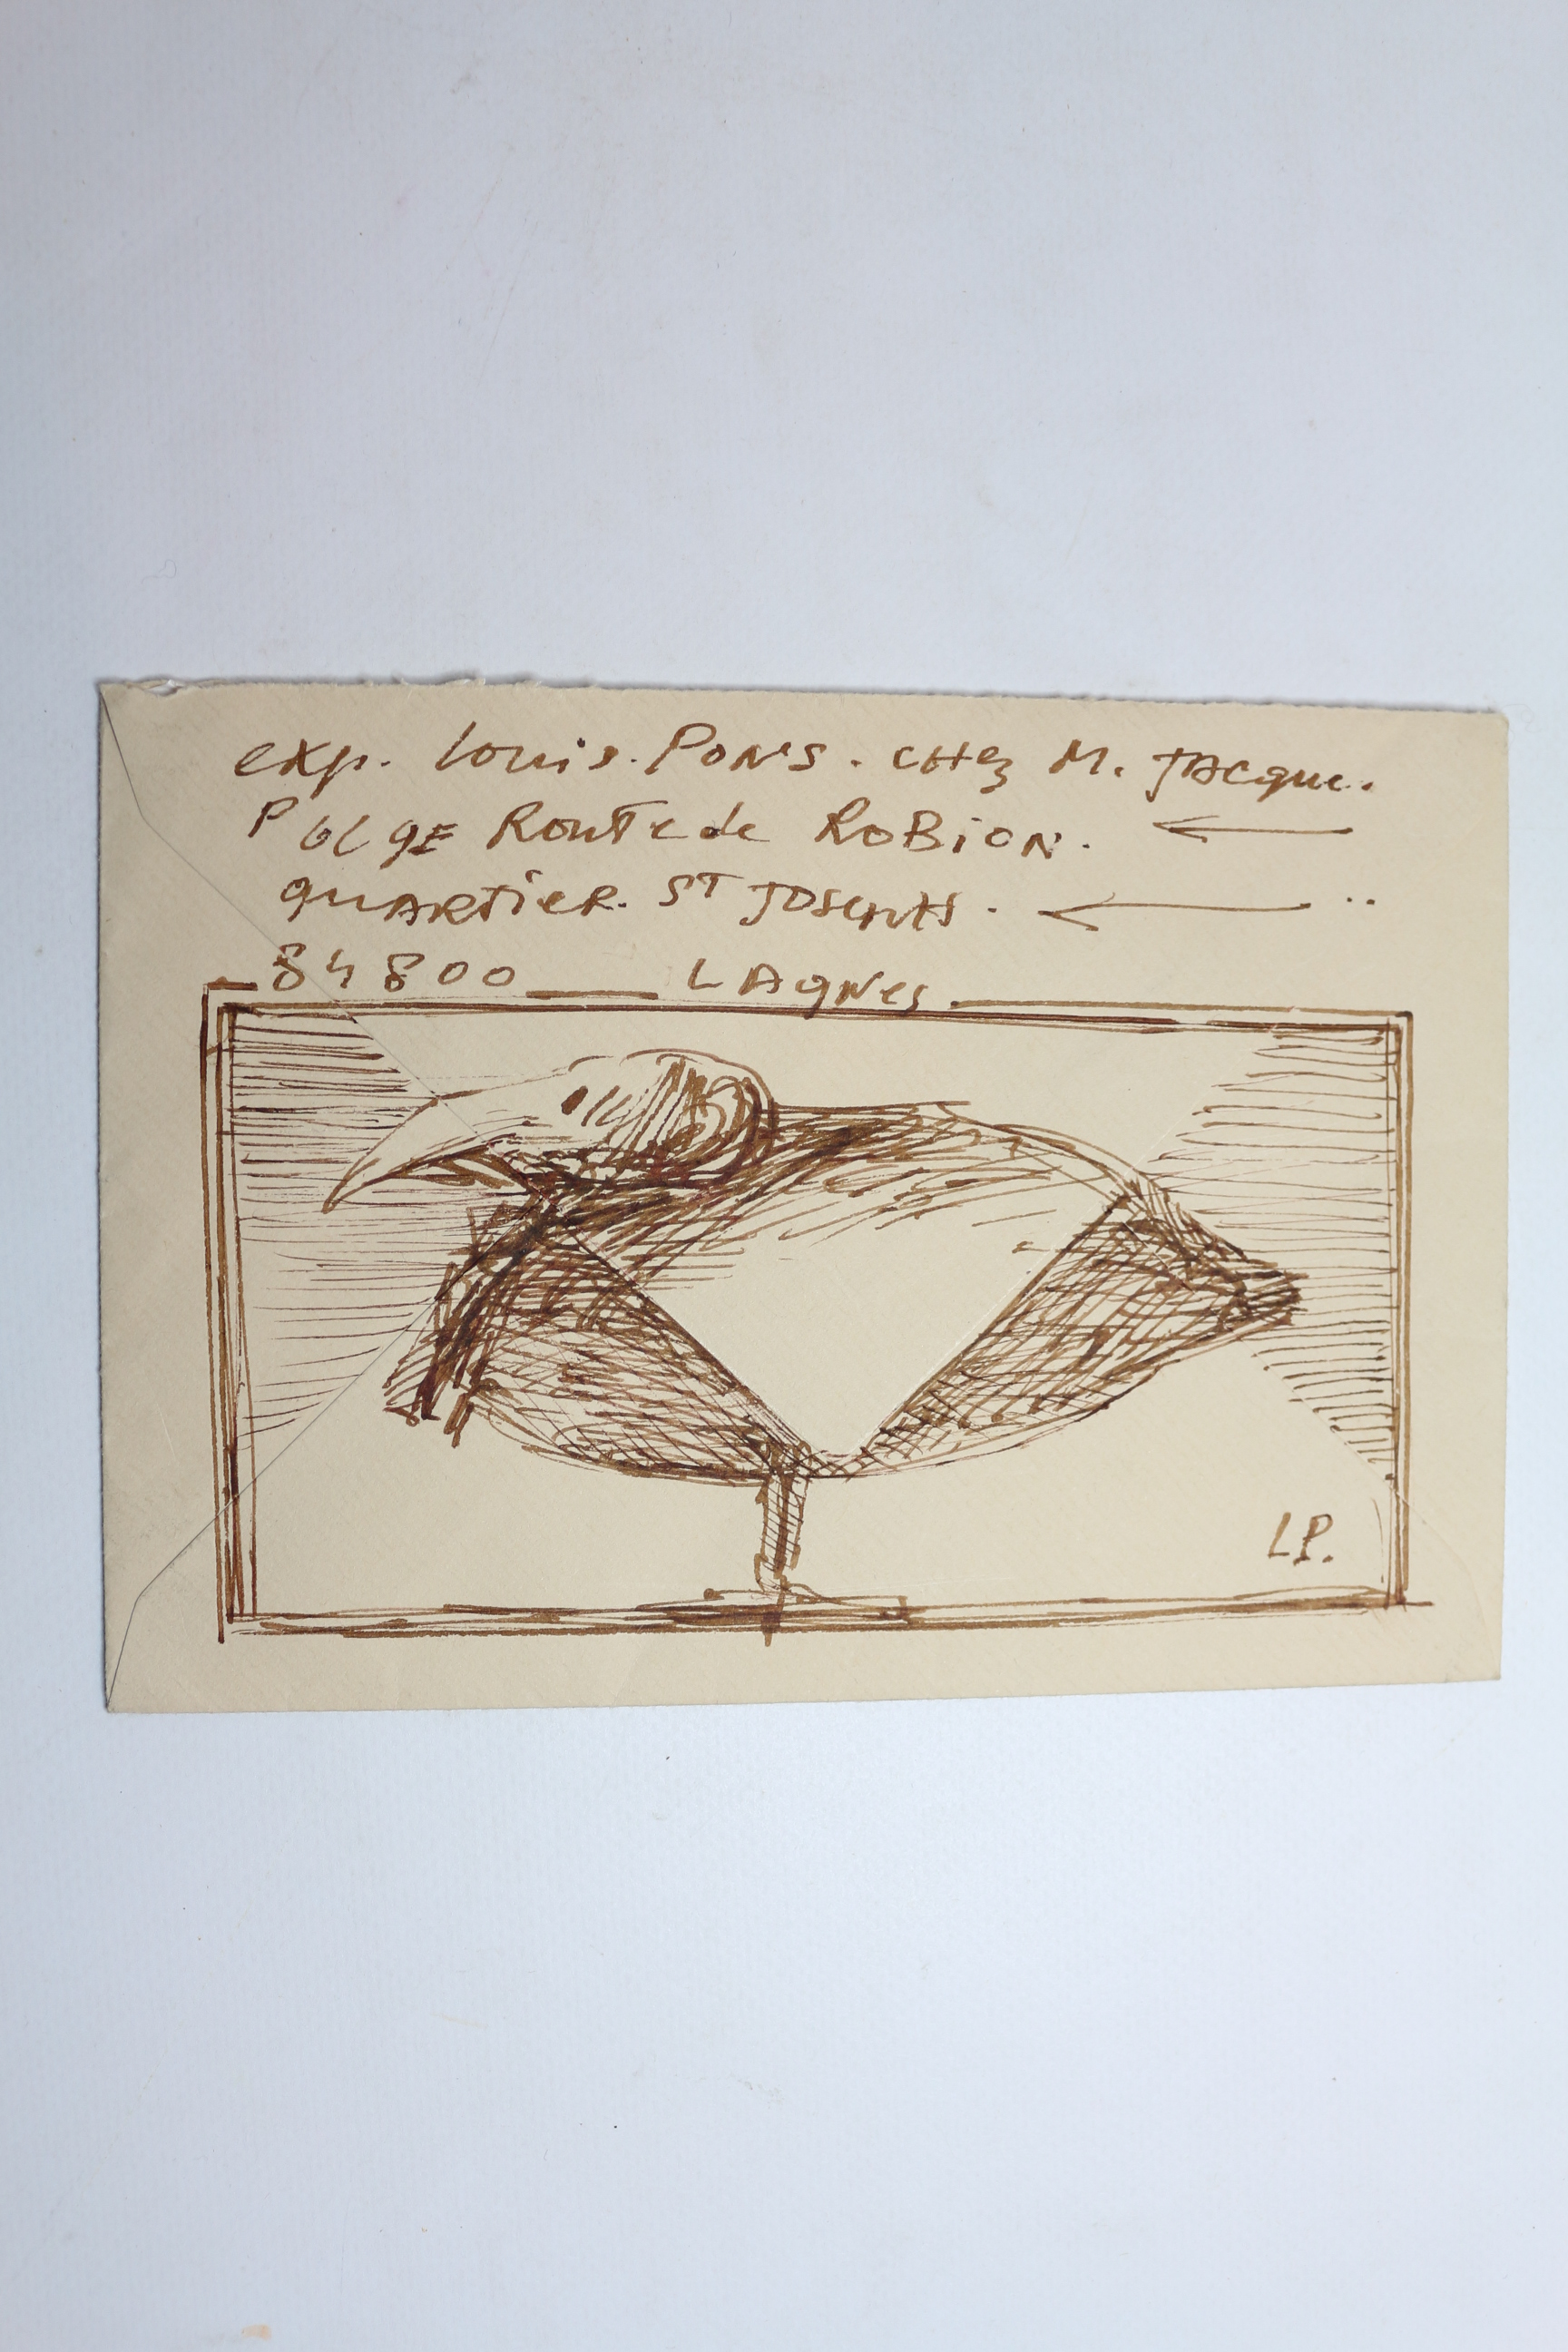 exp. Louis. PONS. CHez M. JAcque.
POLGE Route de ROBiON.
quARTiER. ST JOSEPH.
84800 LAgNes.
LP.